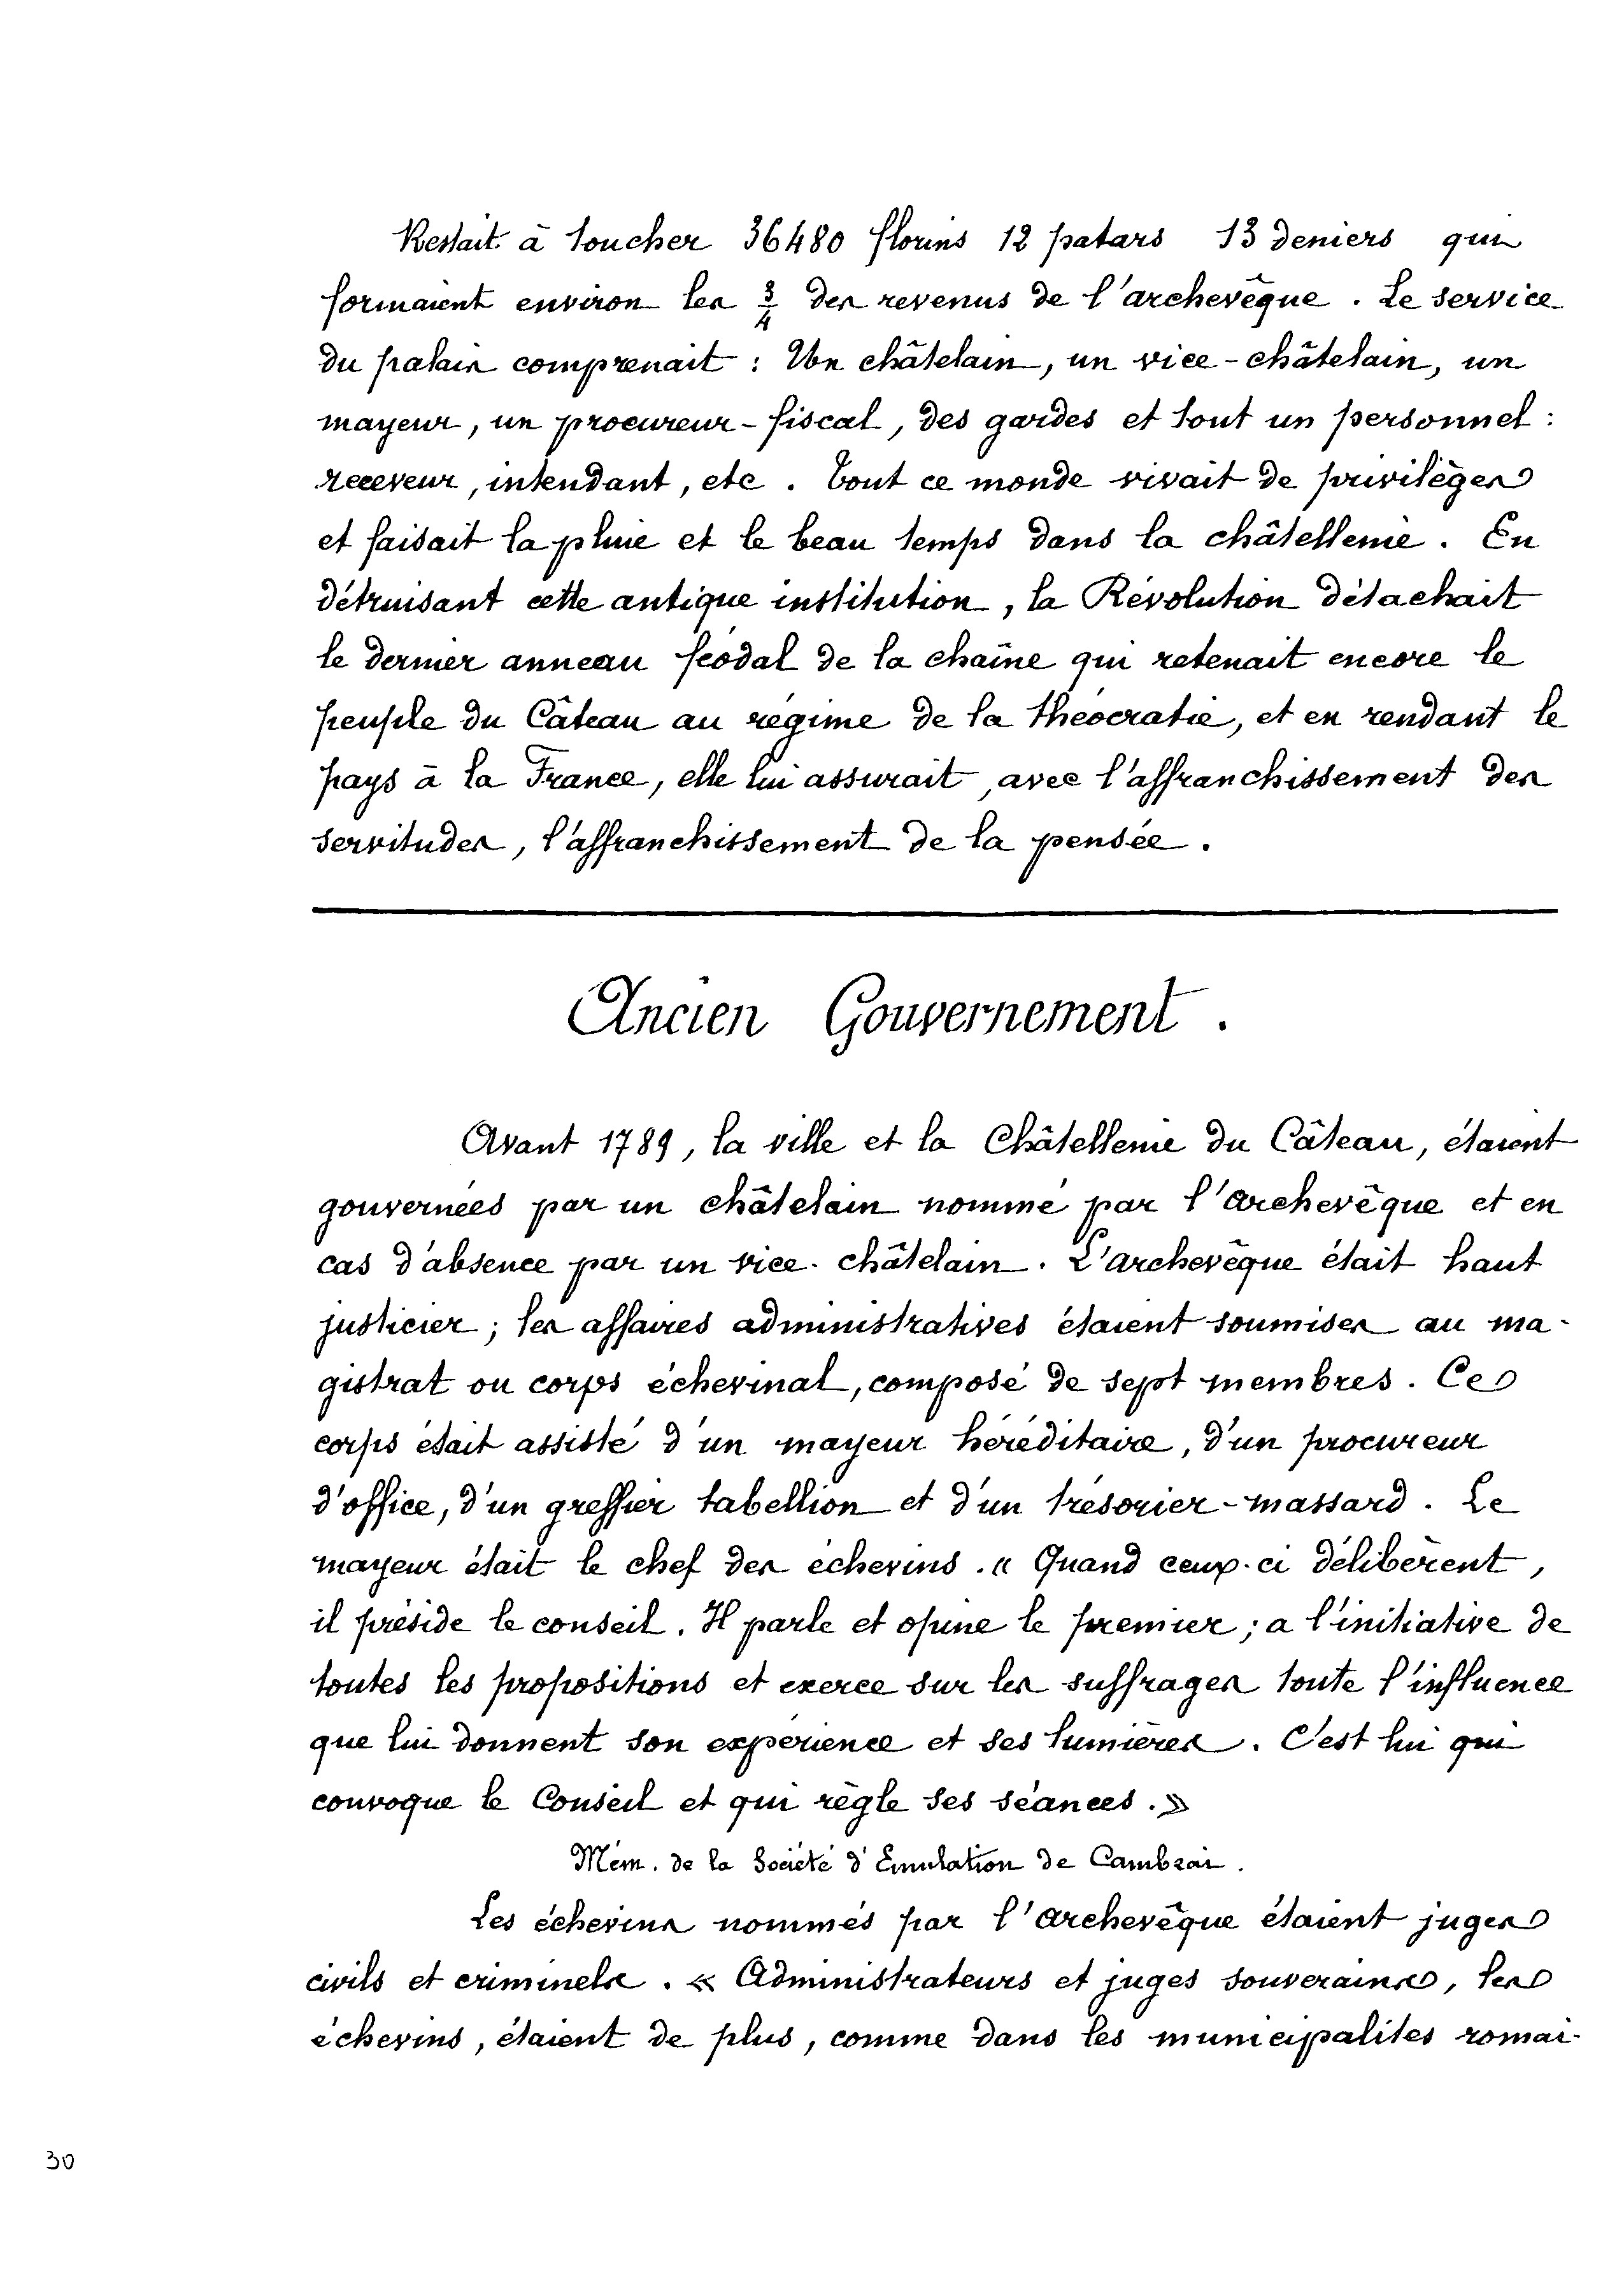 Restait à toucher 36480 florins 12 patars 13 deniers qui
formaient environ les 3/4 des revenus de l'archevêque. Le service
du palais comprenait : Un châtelain, un vice-châtelain, un
mayeur, un procureur-fiscal, des gardes et tout un personnel :
receveur, intendant, etc. Tout ce monde vivait de privilèges
et faisait la pluie et le beau temps dans la châtellenie. En
détruisant cette antique institution, la Révolution détachait
le dernier anneau féodal de la chaîne qui retenait encore le
peuple du Câteau au régime de la théocratie, et en rendant le
pays à la France, elle lui assurait, avec l'affranchissement des
servitudes, l'affranchissement de la pensée.
Ancien Gouvernement.
Avant 1789, la ville et la Châtellenie du Câteau, étaient
gouvernées par un châtelain nommé par l'Archevêque et en
cas d'absence par un vice-châtelain. L'Archevêque était haut
justicier ; les affaires administratives étaient soumises au ma-
gistrat ou corps échevinal, composé de sept membres. Ce
corps était assisté d'un mayeur héréditaire, d'un procureur
d'office, d'un greffier tabellion et d'un trésorier-massard. Le
mayeur était le chef des échevins. « Quand ceux-ci délibèrent,
il préside le conseil. Il parle et opine le premier ; a l'initiative de
toutes les propositions et exerce sur les suffrages toute l'influence
que lui donnent son expérience et ses lumières. C'est lui qui
convoque le Conseil et qui règle ses séances. »
Mém. de la Société d'Emulation de Cambrai.
Les échevins nommés par l'Archevêque étaient juges
civils et criminels. « Administrateurs et juges souverains, les
échevins, étaient de plus, comme dans les municipalités romai-
30